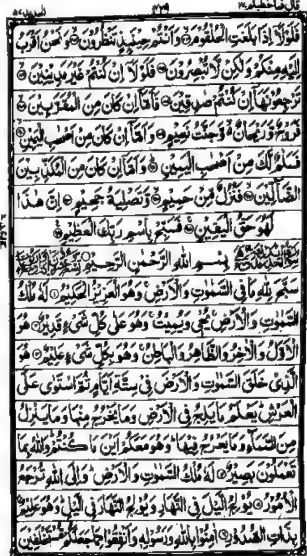 قال فما خطبكم ٢٧
٤٢٩
فَلَوْلَا إِذَا بَلَغَتِ الْحُلْقُومَ وَأَنتُمْ حِينَئِذٍ تَنظُرُونَ وَنَحْنُ أَقْرَبُ
إِلَيْهِ مِنكُمْ وَلَٰكِن لَّا تُبْصِرُونَ فَلَوْلَا إِن كُنتُمْ غَيْرَ مَدِينِينَ
تَرْجِعُونَهَا إِن كُنتُمْ صَادِقِينَ فَأَمَّا إِن كَانَ مِنَ الْمُقَرَّبِينَ
فَرَوْحٌ وَرَيْحَانٌ وَجَنَّتُ نَعِيمٍ وَأَمَّا إِن كَانَ مِنْ أَصْحَابِ الْيَمِينِ
فَسَلَامٌ لَّكَ مِنْ أَصْحَابِ الْيَمِينِ وَأَمَّا إِن كَانَ مِنَ الْمُكَذِّبِينَ
الضَّالِّينَ فَنُزُلٌ مِّنْ حَمِيمٍ وَتَصْلِيَةُ جَحِيمٍ إِنَّ هَٰذَا
لَهُوَ حَقُّ الْيَقِينِ فَسَبِّحْ بِاسْمِ رَبِّكَ الْعَظِيمِ
بِسْمِ اللَّهِ الرَّحْمَٰنِ الرَّحِيمِ
سَبَّحَ لِلَّهِ مَا فِي السَّمَٰوَٰتِ وَالْأَرْضِ وَهُوَ الْعَزِيزُ الْحَكِيمُ لَهُ مُلْكُ
السَّمَٰوَٰتِ وَالْأَرْضِ يُحْيِي وَيُمِيتُ وَهُوَ عَلَىٰ كُلِّ شَيْءٍ قَدِيرٌ هُوَ
الْأَوَّلُ وَالْآخِرُ وَالظَّاهِرُ وَالْبَاطِنُ وَهُوَ بِكُلِّ شَيْءٍ عَلِيمٌ هُوَ
الَّذِي خَلَقَ السَّمَٰوَٰتِ وَالْأَرْضَ فِي سِتَّةِ أَيَّامٍ ثُمَّ اسْتَوَىٰ عَلَى
الْعَرْشِ يَعْلَمُ مَا يَلِجُ فِي الْأَرْضِ وَمَا يَخْرُجُ مِنْهَا وَمَا يَنزِلُ
مِنَ السَّمَاءِ وَمَا يَعْرُجُ فِيهَا وَهُوَ مَعَكُمْ أَيْنَ مَا كُنتُمْ وَاللَّهُ بِمَا
تَعْمَلُونَ بَصِيرٌ لَهُ مُلْكُ السَّمَٰوَٰتِ وَالْأَرْضِ وَإِلَى اللَّهِ تُرْجَعُ
الْأُمُورُ يُولِجُ اللَّيْلَ فِي النَّهَارِ وَيُولِجُ النَّهَارَ فِي اللَّيْلِ وَهُوَ عَلِيمٌ
بِذَاتِ الصُّدُورِ آمِنُوا بِاللَّهِ وَرَسُولِهِ وَأَنفِقُوا مِمَّا جَعَلَكُم مُّسْتَخْلَفِينَ